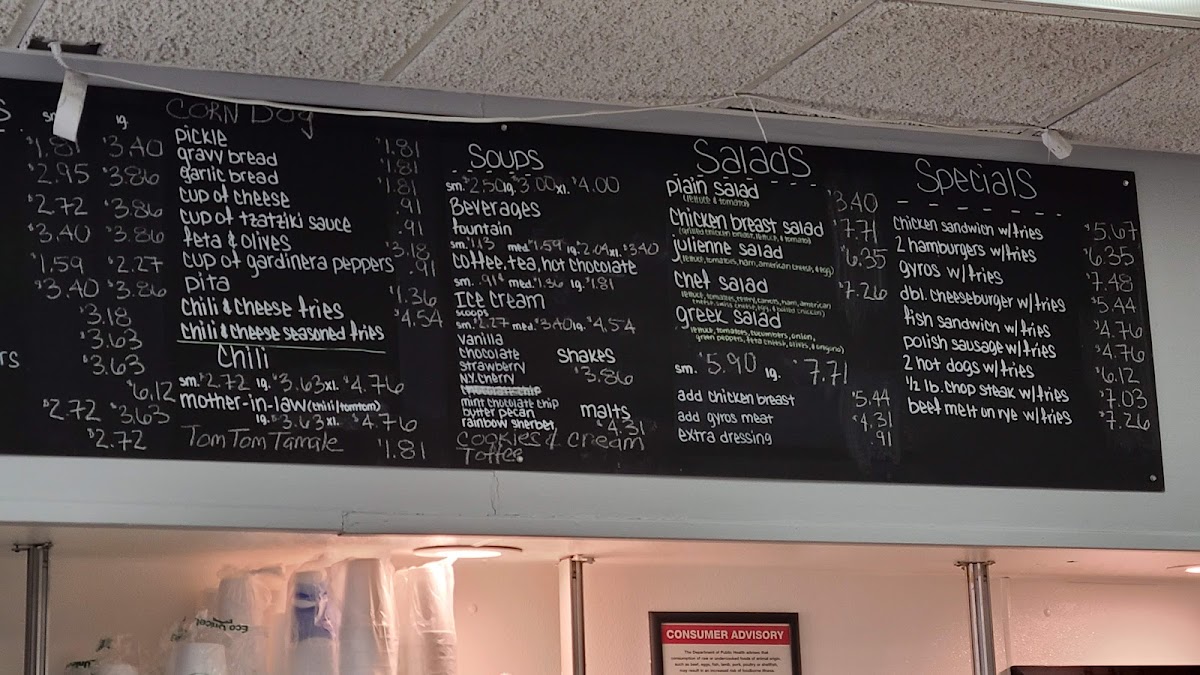 S sm. lg.
$1.81 $3.40
$2.95 $3.86
$2.72 $3.86
$3.40 $3.86
$1.59 $2.27
$3.40 $3.86
$3.18
$3.63
rs $3.63
$6.12
$2.72 $3.63
$2.72
CORN DOg
pickle $1.81
gravy bread $1.81
garlic bread $1.81
cup of cheese .91
cup of tzatziki sauce .91
feta & olives $3.18
cup of gardinera peppers .91
pita $1.36
chili & cheese fries $4.54
chili & cheese seasoned fries
Chili
sm. $2.72 lg. $3.63 xl. $4.76
mother-in-law (chili/tomtom)
lg. $3.63 xl. $4.76
Tom Tom Tamale $1.81
Soups
sm. $2.50 lg. $3.00 xl. $4.00
Beverages
fountain
sm. $1.13 med. $1.59 lg. $2.04 xl. $3.40
coffee, tea, hot chocolate
sm. .91¢ med. $1.36 lg. $1.81
Ice Cream
scoops
sm. $2.27 med. $3.40 lg. $4.54
vanilla
chocolate
strawberry
N.Y. cherry
mint chocolate chip
butter pecan
rainbow sherbet
cookies & cream
Toffee
shakes
$3.86
malts
$4.31
Salads
plain salad $3.40
(lettuce & tomato)
chicken breast salad $7.71
(grilled chicken breast, lettuce, & tomato)
julienne salad $6.35
(lettuce, tomatoes, ham, american cheese, & egg)
chef salad $7.26
greek salad
lettuce, tomatoes, cucumbers, onion,
green peppers, feta cheese, olives, & oregano)
sm. $5.90 lg. $7.71
add chicken breast $5.44
add gyros meat $4.31
extra dressing .91
Specials
chicken sandwich w/fries $5.67
2 hamburgers w/fries $6.35
gyros w/fries $7.48
dbl. cheeseburger w/fries $5.44
fish sandwich w/fries $4.76
polish sausage w/fries $4.76
2 hot dogs w/fries $6.12
1/2 lb. chop steak w/fries $7.03
beef melt on rye w/fries $7.26
CONSUMER ADVISORY
The Department of Public Health advises that
consumption of raw or undercooked foods of animal origin,
such as beef, eggs, fish, lamb, pork, poultry or shellfish,
may result in an increased risk of foodborne illness.